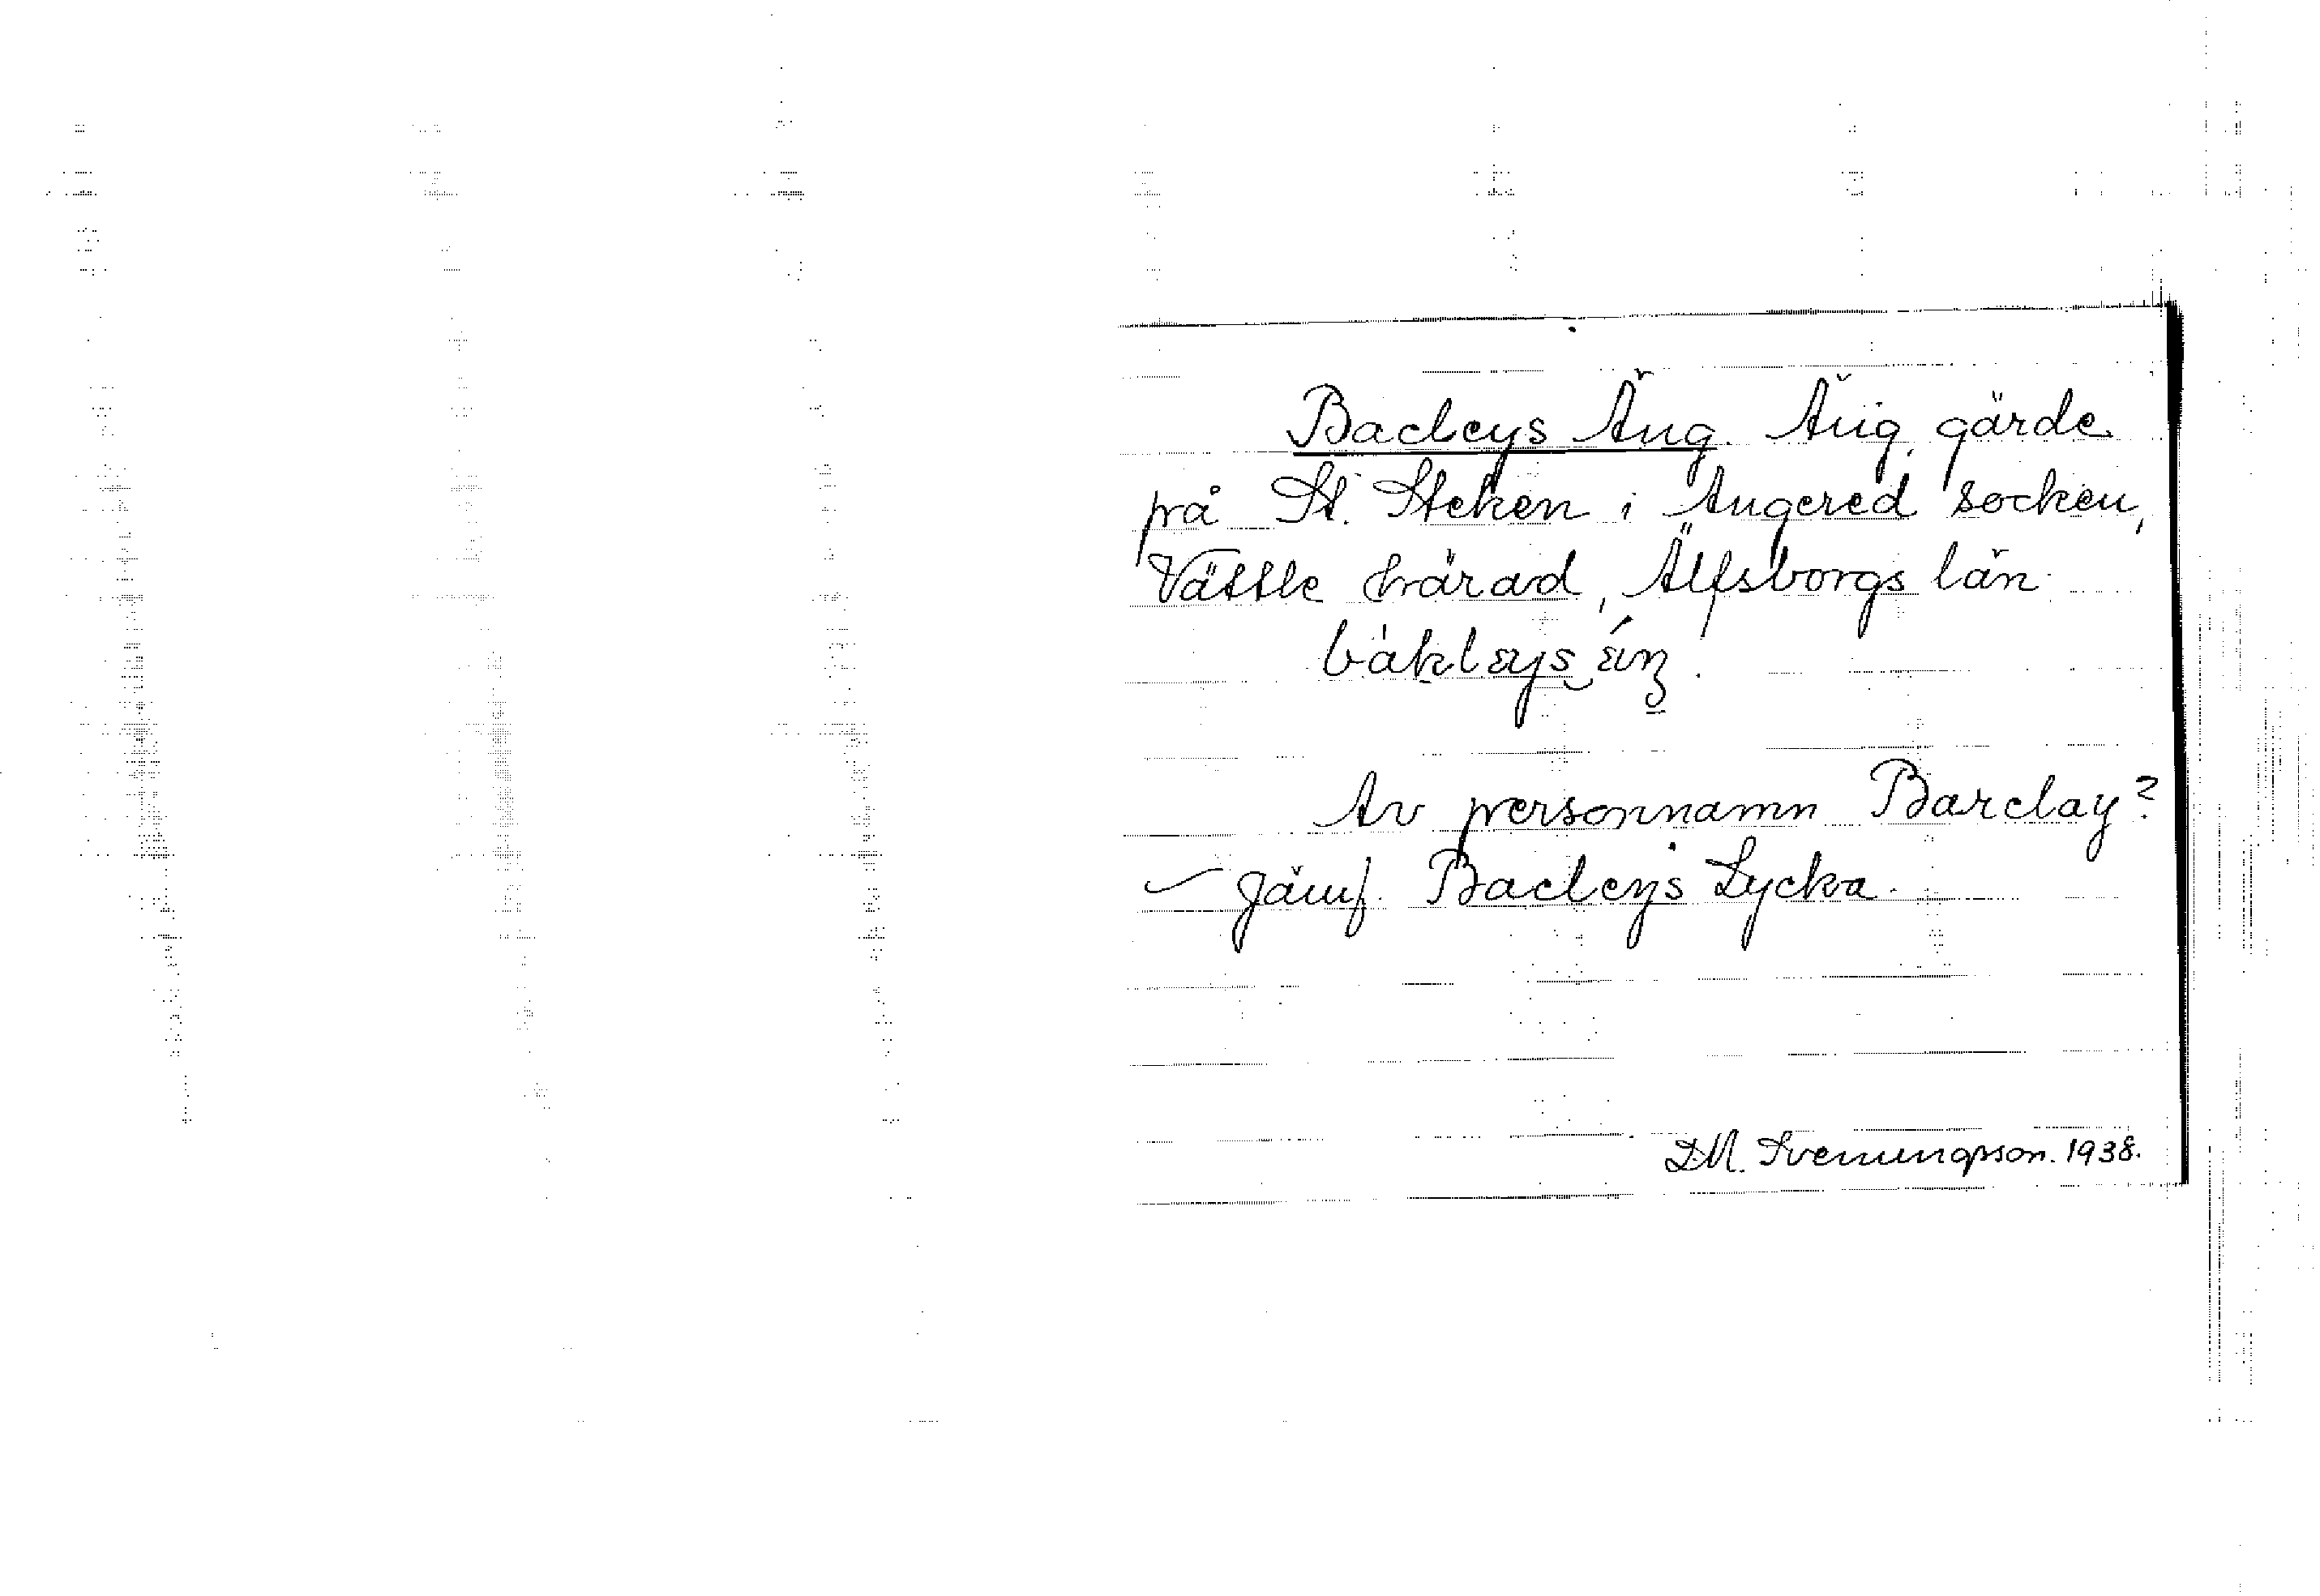 Bacleys Äng. Äng, gärde
på St. Steken i Angered socken,
Vättle härad, Älfsborgs län.
bàkleys äŋ.
Av personnamn Barclay?
Jämf. Bacleys Lycka.
D.M. Svenungsson. 1938.